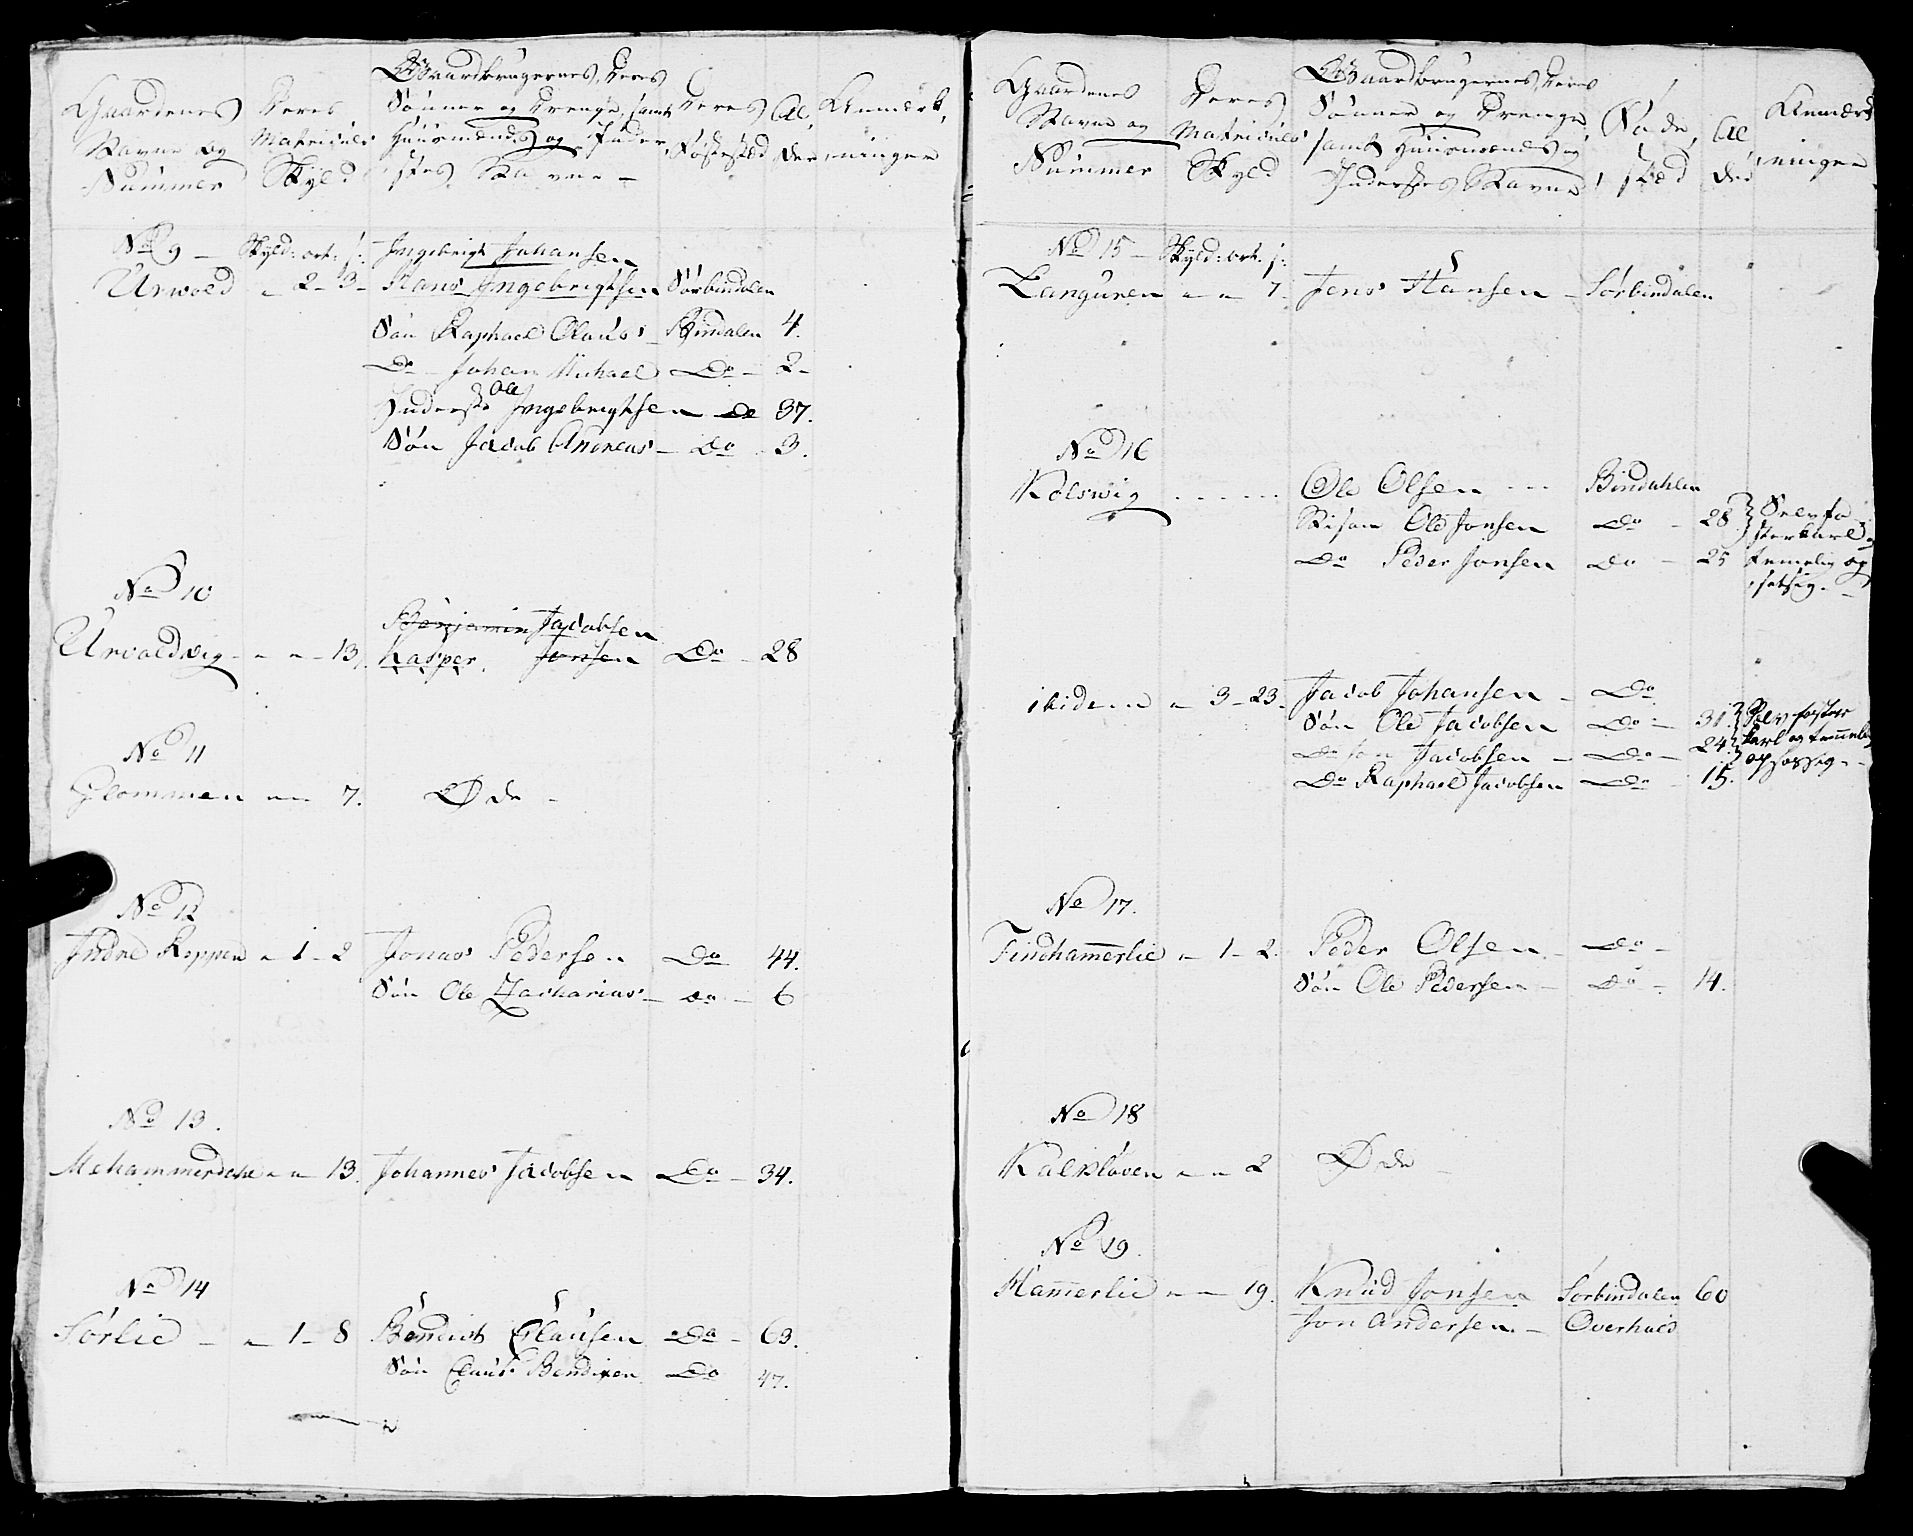 Gaardenes Navne og Nummer
Deres Matriculs Skyld
Gaardbrugernes, deres Sønner og Drenge, samt Huusmænds og Inderstes Navne –
Deres Fødested
Al der
Anmærkninger
No 9 – Skyld: ort: s: Ingebrigt Johansen
Urvold – 2 – 3 – Hans Ingebrigtsen Sørbindalen
Søn Raphael Olaus Bindalen 4.
Do – Johan Michael Do – 2 –
Inderste Ole Ingebrigtsen do 37.
Søn Jacob Andreas – Do 3.
No 10
Benjamin Jacobsen
Urvoldvig – " – " – 13, Kasper Jonsen Do – 28
No 11
Glommen " – " 7. Øde –
No 12
Indre Reppen " 1 – 2 Jonas Pedersen Do 44.
Søn Ole Zacharias – do – 6
No 13.
Mehammerdahl " – " 13. Johannes Jacobsen Do – 34.
No 14
Sørlie – " – 1 – 8 Bendict Clausen Do – 63.
Søn Claus Bendixen Do 47.
Gaardenes Navne og Nummer
Deres Matriculs Skyld
Gaardbrugernes, deres Sønner og Drenge samt Huusmænds og Inderstes Navne
Føde sted
Al der
Anmærkninger
No 15 – Skyld: ort. s:
Languren " – " 7. Jens Hansen – Sørbindalen
No 16
Kolsvig Ole Olsen Bindahlen
Ole Jonsen Do – 28
Do Peder Jonsen do – 25 temelig op
sætsig. –
ibidem " 3 – 23. Jacob Johansen – Do
Søn Ole Jacobsen Do – 31.
Do Jacobsen – Do – 24. karl og
Do Raphael Jacobsen Do 15.
No 17.
Findhammerlie " 1 – 2. Peder Olsen – do –
Søn Ole Pedersen – do – 14.
No 18
Kalkløven " – " 2 Øde –
No 19.
Hammerlie " – " 19. Knud Jonsen Sørbindalen 60
Jon Andersen. – Overhald